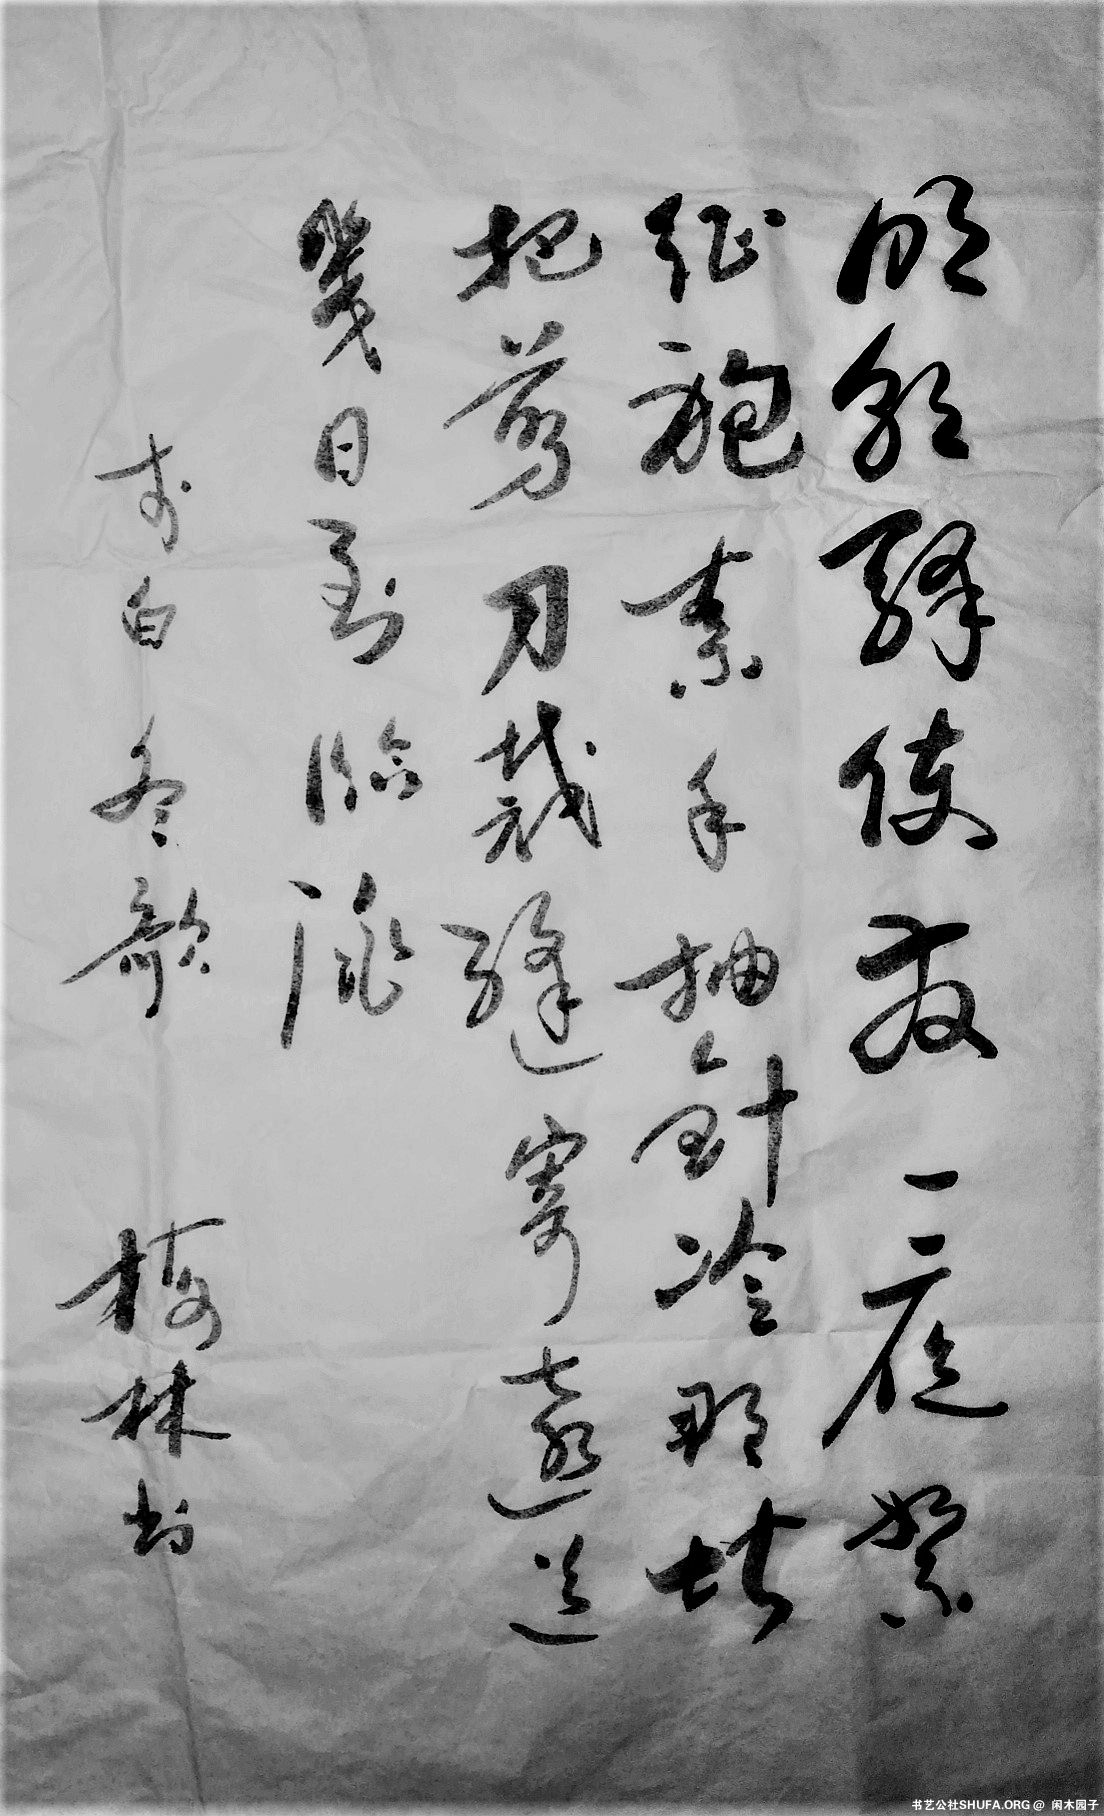 明朝驛使發一夜絮
征袍素手抽針冷那堪
把剪刀裁縫寄遠道
幾日到臨洮
李白冬歌 梅林书
书艺公社SHUFA.ORG @ 闲木园子